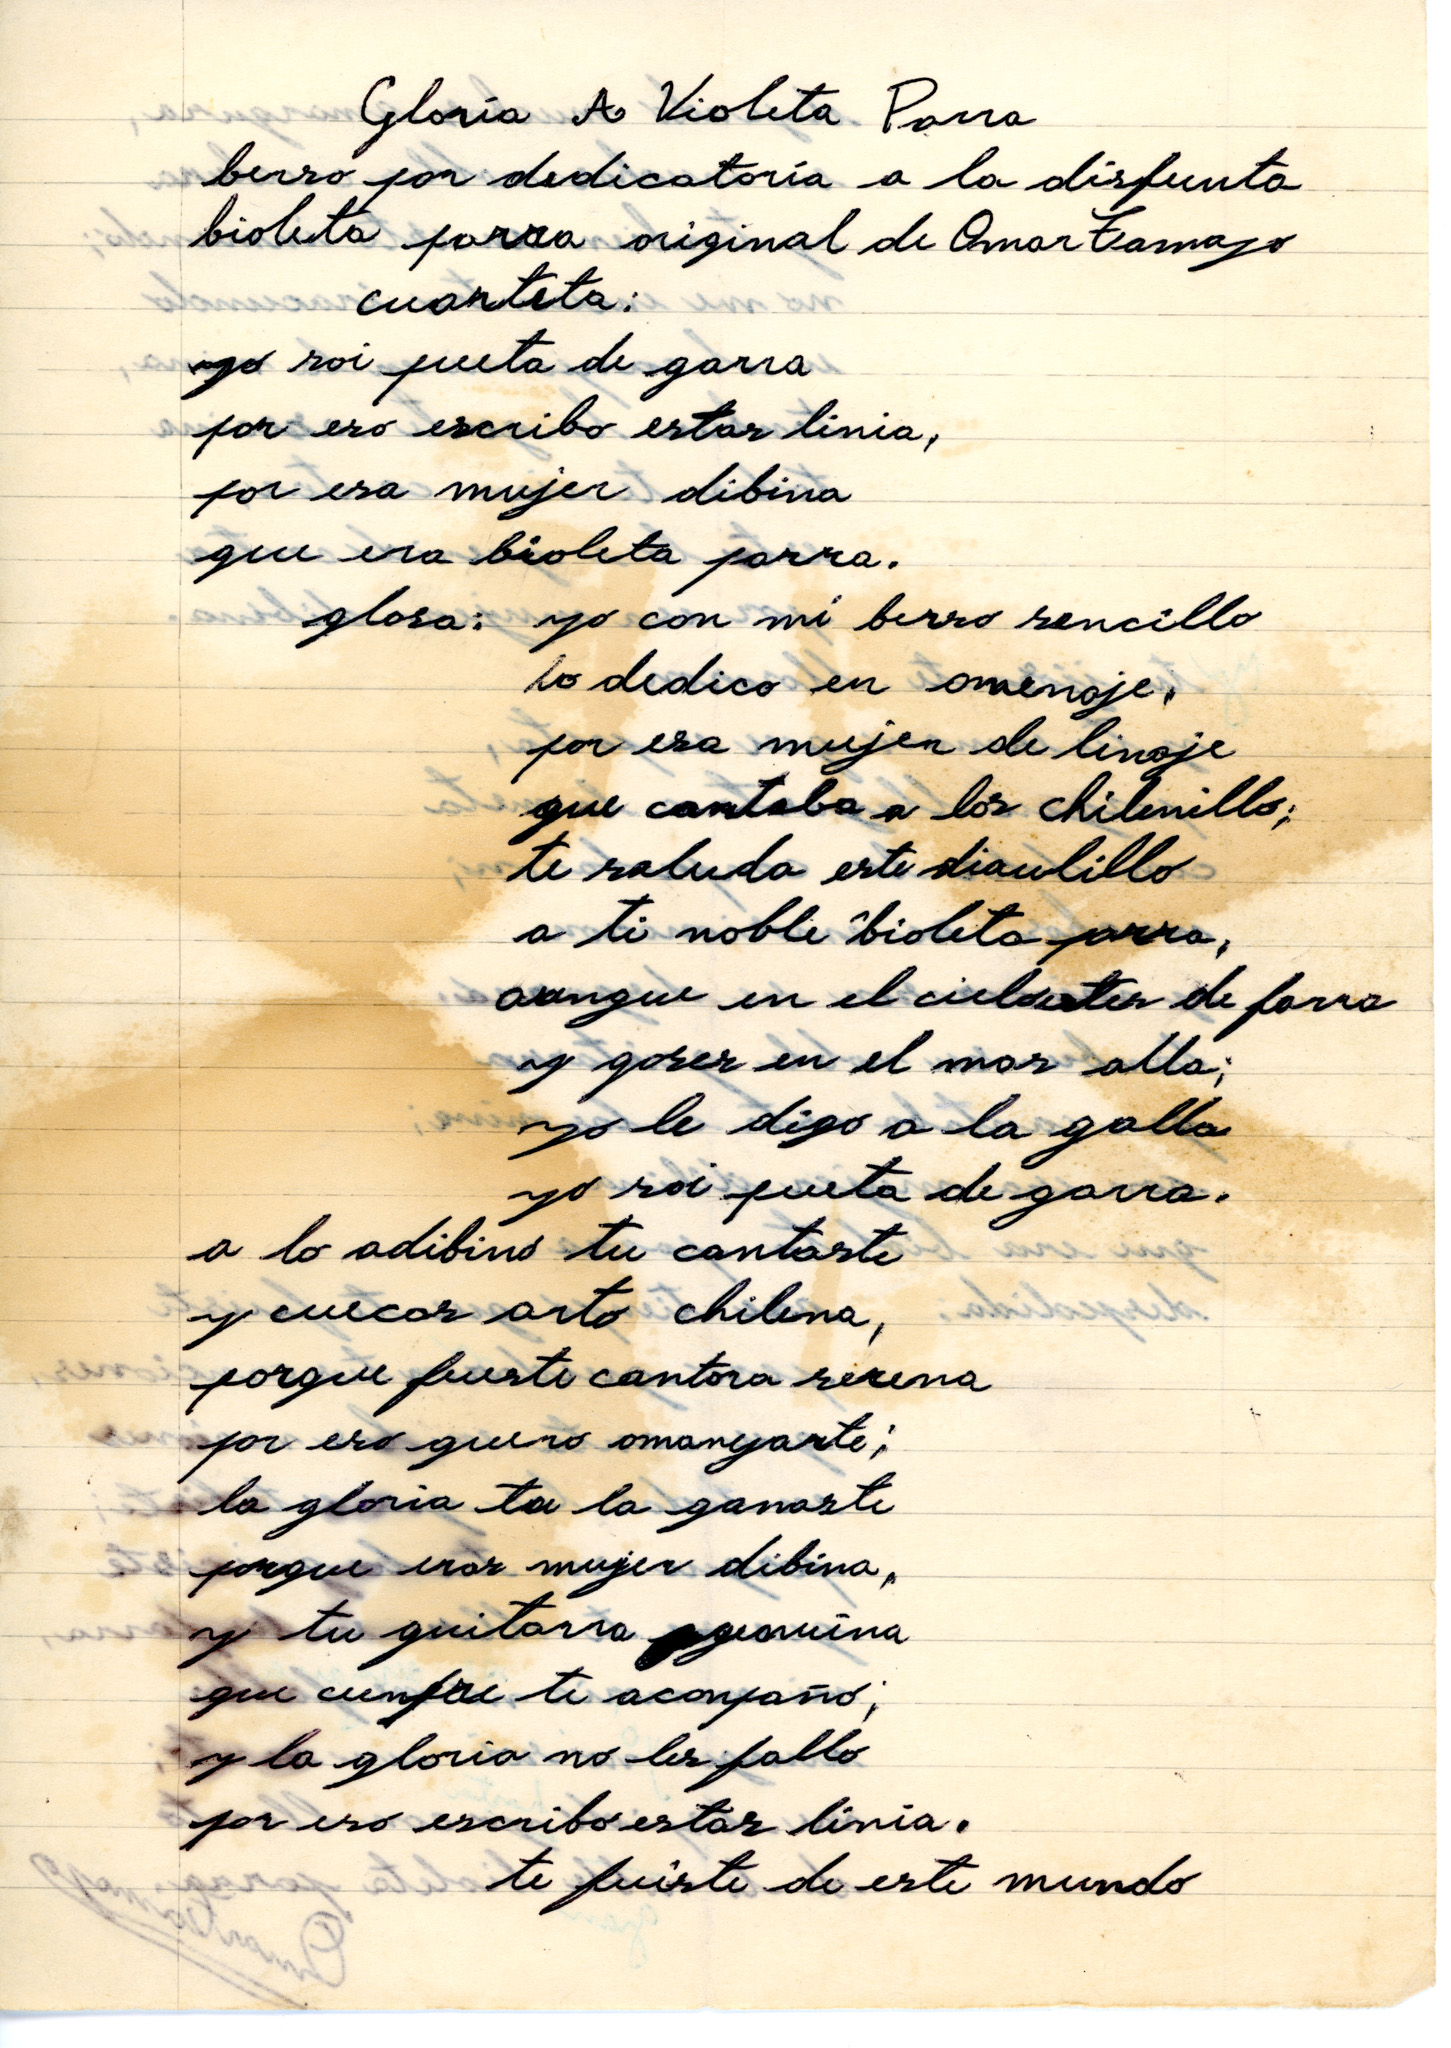 Gloria A Violeta Parra
berso por dedicatoria a la disfunta
bioleta parra original de Omar Tamayo
cuarteta:
yo soi pueta de garra
por eso escribo estas linia,
por esa mujer dibina
que era bioleta parra.
glosa: yo con mi berso sencillo
lo dedico en omenaje,
por esa mujer de linaje
que cantaba a los chilenillo;
te saluda este diaulillo
a ti noble bioleta parra,
aunque en el cielo estes de farra
y goses en el mas alla;
yo le digo a la galla
yo soi pueta de garra.
a lo adibino tu cantaste
y cuecas arto chilena,
porque fueste cantora serena
por eso quero omanyarte;
la gloria tu la ganaste
porque eras mujer dibina,
y tu guitarra genuina
que cienpre te aconpaño;
y la gloria no les fallo
por eso escribo estas linia.
te fuiste de este mundo